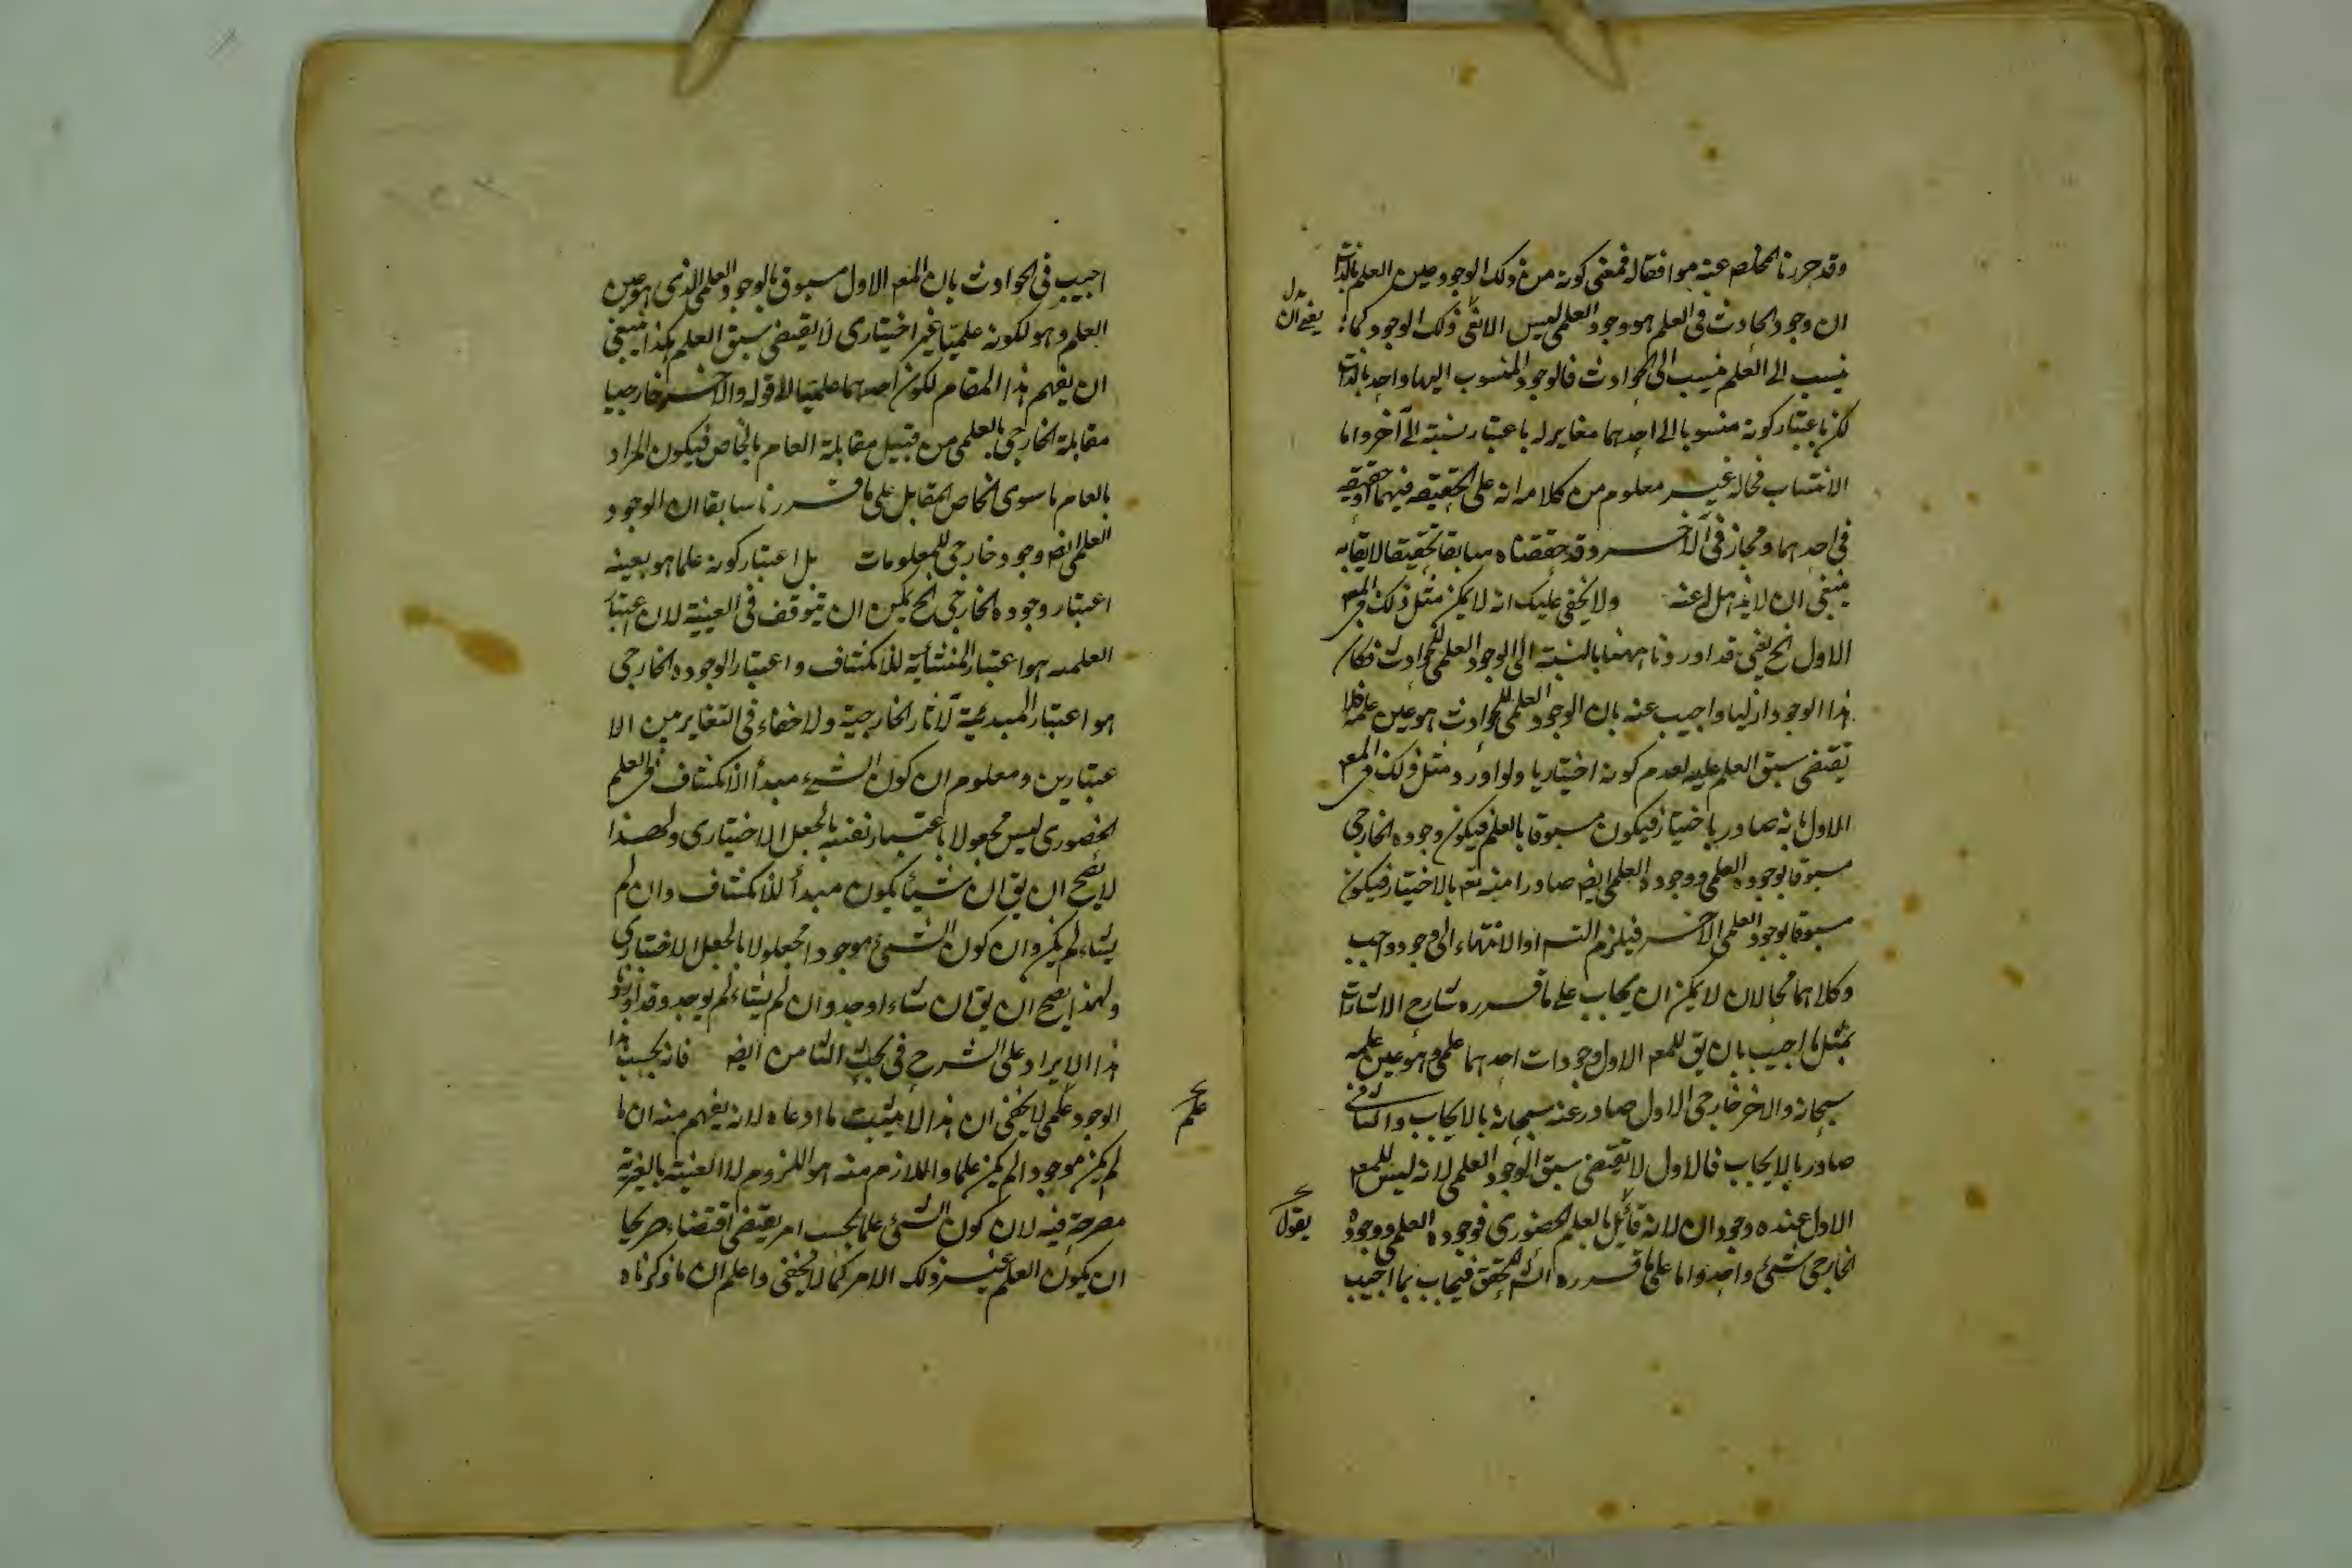 وقد حررنا المخلص عنه موافقا له فمعنى كونه من ذلك الوجود عين العلم بالذات
ان وجود الحادث فى العلم هو وجود العلمى ليس الا نفى ذلك الوجود كما
ينسب الى العلم ينسب الى الحوادث فالوجود المنسوب اليها واحد بالذات
لكن باعتبار كونه منسوبا الى احدهما مغاير له باعتبار نسبته الى آخر واما
الانتساب فحاله غير معلوم من كلامه انه على الحقيقه فيهما او حقيقه
فى احدهما ومجاز فى الآخر وقد حققناه سابقا تحقيقا لايقا به
ينبغى ان لا يذهل عنه ولا يخفى عليك انه لا يمكن مثل ذلك فى المعم
الاول الخ يعنى قد اوردنا ههنا بالنسبة الى الوجود العلمى للحوادث فكان
هذا الوجود ازليا واجيب عنه بان الوجود العلمى للحوادث هو عين علمه فلا
يقتضى سبق العلم عليه لعدم كونه اختياريا ولو اورد مثل ذلك فى المعم
الاول بانه صادر باختيار فيكون مسبوقا بالعلم فيكون وجوده الخارجى
مسبوقا بوجوده العلمى ووجوده العلمى ايضه صادرا منه تعم بالاختيار فيكون
مسبوقا بوجود العلمى الآخر فيلزم التسه او الانتهاء الى وجود واجب
وكلاهما محالان لا يمكن ان يجاب على ما قرره شارح الاشارات
بمثل ما اجيب بان يق للمعم الاول وجودات احدهما علمى وهو عين علمه
سبحانه والاخر خارجى الاول صادر عنه سبحانه بالايجاب والثانى
صادر بالايجاب فالاول لا يقتضى سبق الوجود العلمى لانه ليس للمعم
الاول عنده وجودان لانه قائل بالعلم الحضورى فوجوده العلمى ووجوده
الخارجى شئ واحد واما على ما قرره الشه المحقق فيجاب بما اجيب
يعنى ان
يقول
اجيب فى الحوادث بان المعم الاول مسبوق بالوجود العلمى الذى هو عين
العلم وهو لكونه علميا غير اختيارى لا يقتضى سبق العلم هكذا ينبغى
ان يفهم هذا المقام لكون احدهما علميا الا قوله والآخر خارجيا
مقابلة الخارجى بالعلمى من قبيل مقابلة العام بالخاص فيكون المراد
بالعام ما سوى الخاص المقابل على ما قررنا سابقا ان الوجود
العلمى ايضه وجود خارجى للمعلومات بل اعتبار كونه علما هو بعينه
اعتبار وجوده الخارجى الخ يمكن ان يتوقف فى العينية لان اعتبار
العلميه هو اعتبار المنشأية للانكشاف واعتبار الوجود الخارجى
هو اعتبار المبدئية لآثار الخارجية ولا خفاء فى التغاير من الا
عتبارين ومعلوم ان كون الشئ مبدأ الانكشاف فى العلم
الحضورى ليس مجعولا باعتبار نفسه بالجعل الاختيارى ولهذا
لا يصح ان يق ان شيئا يكون مبدأ للانكشاف وان لم
يشاء لم يكن وان كون الشئ موجودا مجعولا بالجعل الاختيارى
ولهذا يصح ان يق ان شاء اوجد وان لم يشاء لم يوجد وقد اوردنا
هذا الايراد على الشرح فى بحث الثامن ايضه فانه بحسب هذا
الوجود علمى لا يخفى ان هذا لا يثبت ما ادعاه لانه يفهم منه ان ما
لم يكن موجودا لم يكن علما واللازم منه هو اللزوم لا العنية بالغيرية
مصرحة فيه لان كون الشئ علما بحسب امر يقتضى اقتضاء صريحا
ان يكون العلم غير ذلك الامر كما لا يخفى واعلم ان ما ذكرناه
علم